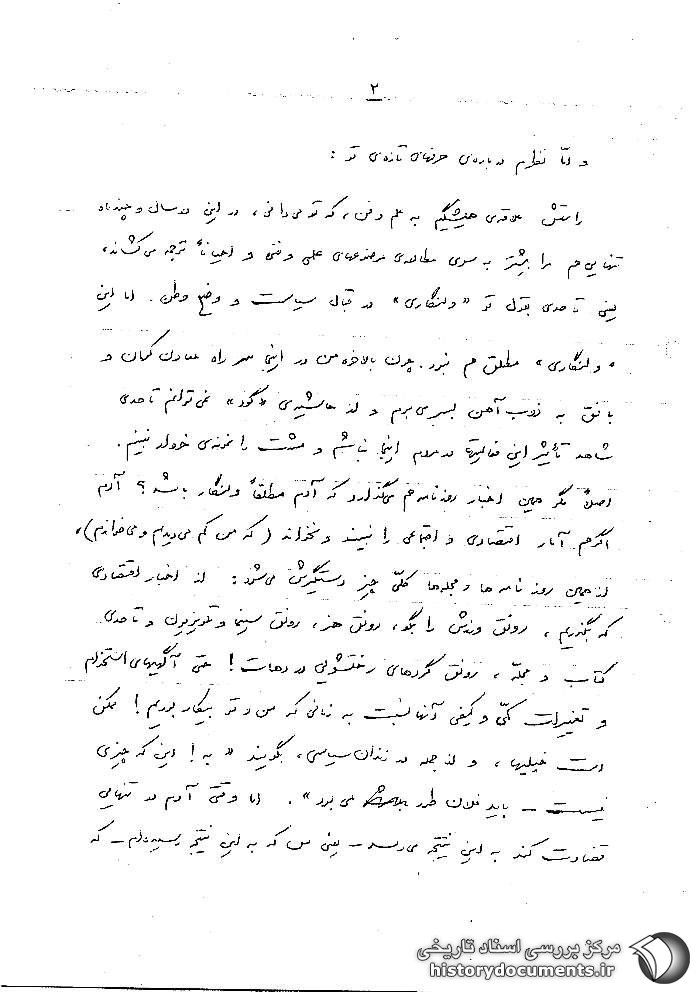 ۲
و امّا نظرم درباره‌ی حرفهای تازه‌ی تو :
راستش علاقه‌ی همیشگیم به علم و فن، که تو می‌دانی، در این دو سال و چند ماه
تنهایی هم مرا بیشتر به سوی مطالعه‌ی موضوعهای علمی و فنی و احیاناً ترجمه می‌کشاند،
یعنی تا حدی بقول تو «ولنگاری» در قبال سیاست و وضع وطن. اما این
«ولنگاری» مطلق هم نبود. چون بالاخره من در اینجا سر راه معادن کرمان و
بافق به ذوب آهن بسر می‌برم و در حاشیه‌ی «گود» نمی‌توانم تا حدی
شاهد تأثیر این فعالیتها در مردم اینجا نباشم و مشت را نمونه‌ی خروار نبینم.
اصلاً مگر همین اخبار روزنامه هم می‌گذارد که آدم مطلقاً ولنگار باشد؟ آدم
اگر هم آمار اقتصادی و اجتماعی را نبیند و نخواند (که من کم می‌دیدم و می‌خواندم)،
از همین روزنامه‌ها و مجله‌ها کلّی چیز دستگیرش می‌شود: از اخبار اقتصادی
که بگذریم، رونق ورزش را بگو، رونق هنر، رونق سینما و تلویزیون و تا حدی
کتاب و مجلّه، رونق گردهای رختشویی در دهات! حتی آگهیهای استخدام
و تغییرات کمّی و کیفی آنها نسبت به زمانی که من و تو بیکار بودیم! ممکن
است خیلیها، و از جمله در زندان سیاسی، بگویند «به! این که چیزی
نیست – باید فلان طور می‌بود». اما وقتی آدم در تنهایی
قضاوت کند به این نتیجه می‌رسد – یعنی من که به این نتیجه رسیده‌ام – که
مرکز بررسی اسناد تاریخی
historydocuments.ir